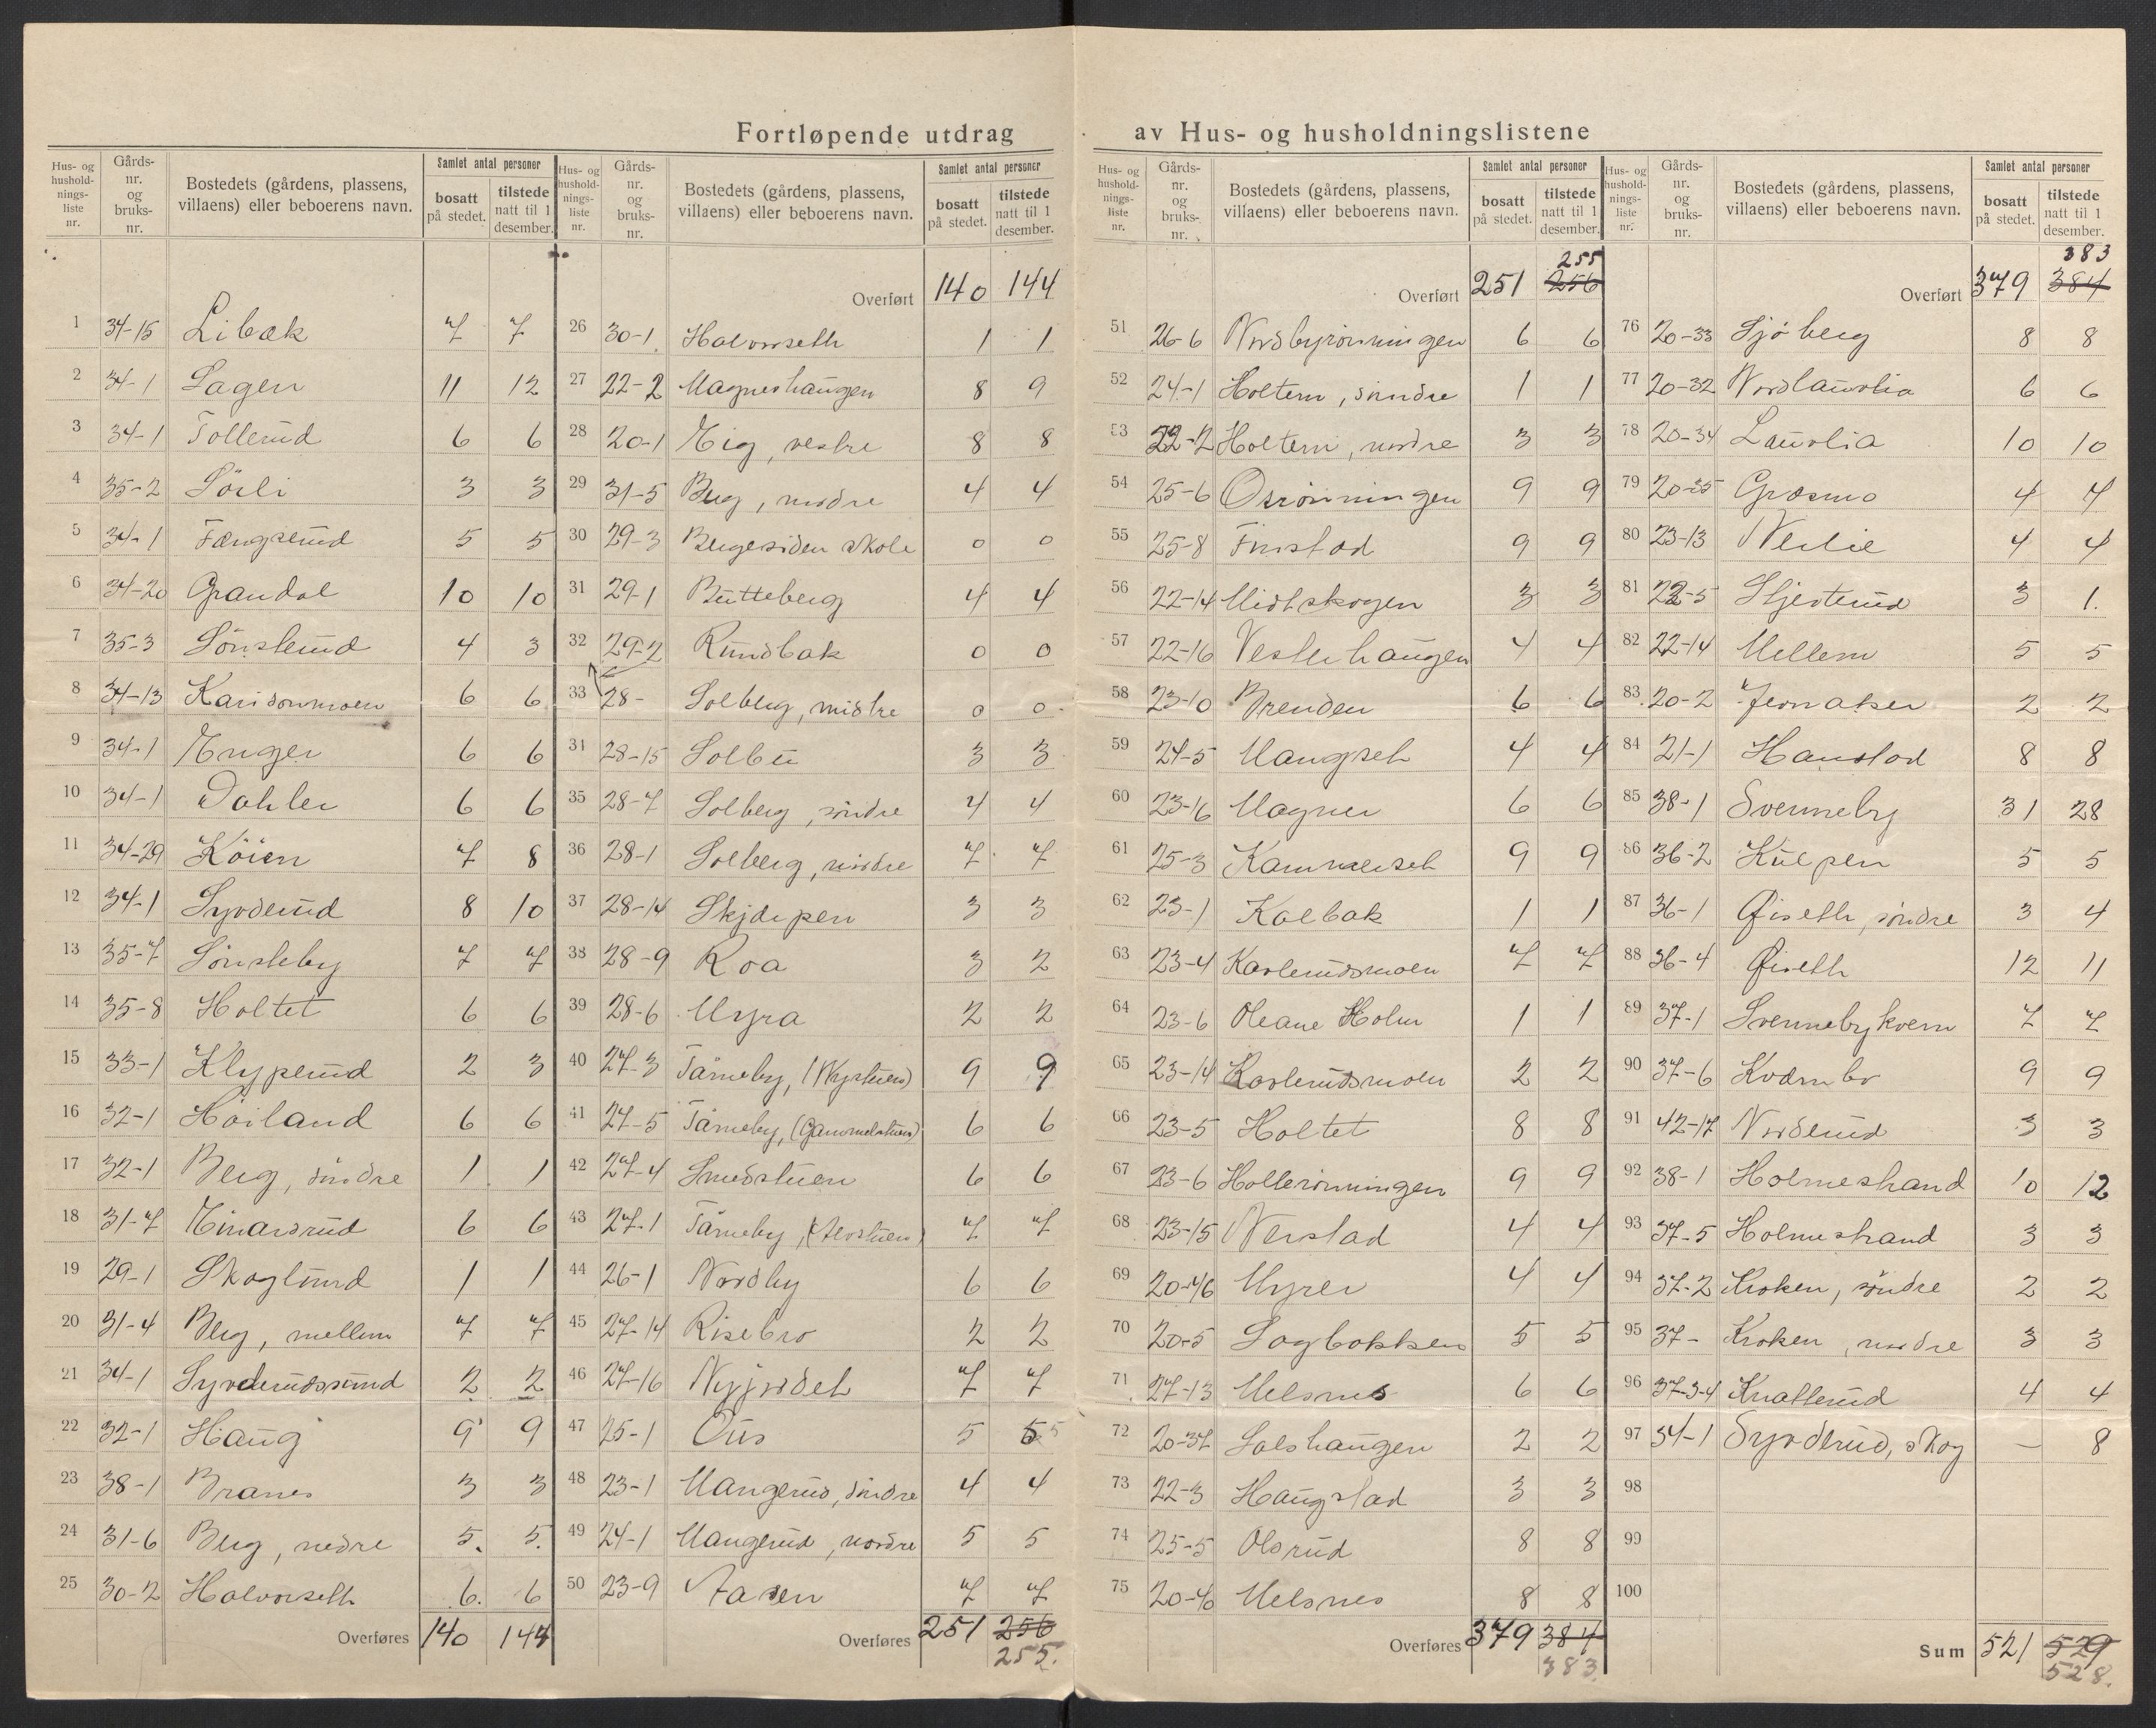 Fortløpende utdrag av Hus- og husholdningslistene
Hus- og hushold-nings-liste nr. Gårds-nr. og bruks-nr. Bostedets (gårdens, plassens, villaens) eller beboerens navn. Samlet antal personer bosatt på stedet. tilstede natt til 1 desember.
1 34-15 Libæk 7 7
2 34-1 Sagen 11 12
3 34-1 Tollerud 6 6
4 35-2 Sörli 3 3
5 34-1 Fængserud 5 5
6 34-20 Grandal 10 10
7 35-3 Sönsterud 4 3
8 34-13 Karisonmoen 6 6
9 34-1 Enger 6 6
10 34-1 Dahler 6 6
11 34-29 Köien 7 8
12 34-1 Syrderud 8 10
13 35-7 Sönsteby 7 7
14 35-8 Holtet 6 6
15 33-1 Klyperud 2 3
16 32-1 Höiland 6 6
17 32-1 Berg, söndre 1 1
18 31-7 Einarsrud 6 6
19 29-1 Skoglund 1 1
20 31-4 Berg, mellem 7 7
21 34-1 Syrderudssund 2 2
22 32-1 Haug 9 9
23 38-1 Branes 3 3
24 31-6 Berg, nedre 5. 5.
25 30-2 Halvorseth 6. 6
Overføres 140 144
Hus- og hushold-nings-liste nr. Gårds-nr. og bruks-nr. Bostedets (gårdens, plassens, villaens) eller beboerens navn. Samlet antal personer bosatt på stedet. tilstede natt til 1 desember.
Overført 140 144
26 30-1 Halvorseth 1 1
27 22-2 Magneshaugen 8 9
28 20-1 Eig, vestre 8 8
29 31-5 Berg, nordre 4 4
30 29-3 Bergesiden skole 0 0
31 29-1 Butteberg 4 4
32 29-2 Rundbak 0 0
33 28- Solberg, midtre 0 0
34 28-15 Solbu 3 3
35 28-7 Solberg, söndre 4 4
36 28-1 Solberg, nordre 7 7
37 28-14 Skjærpen 3 3
38 28-9 Roa 3 2
39 28-6 Myra 2 2
40 27-3 Tårneby, (Nystuen) 9 9
41 27-5 Tårneby, (Gammelstuen) 6 6
42 27-4 Smedstuen 6 6
43 27-1 Tårneby, 7 7
44 26-1 Nordby 6 6
45 27-14 Risebro 2 2
46 27-16 Nyjordet 7 7
47 25-1 Ous 5 5 5
48 23-1 Mangerud, söndre 4 4
49 24-1 Mangerud, nordre 5 5
50 23-9 Aasen 7 7
Overføres 251 256
255.
Hus- og hushold-nings-liste nr. Gårds-nr. og bruks-nr. Bostedets (gårdens, plassens, villaens) eller beboerens navn. Samlet antal personer bosatt på stedet. tilstede natt til 1 desember.
255
Overført 251 256
51 26-6 Nordbyrönningen 6 6
52 24-1 Holtern, söndre 1 1
53 22-2 Holtern, nordre 3 3
54 25-6 Osrönningen 9 9
55 25-8 Finstad 9 9
56 22-14 Midtskogen 3 3
57 22-16 Vesterhaugen 4 4
58 23-10 Brenden 6 6
59 24-5 Mangset 4 4
60 23-16 Magner 6 6
61 25-3 Kammerset 9 9
62 23-1 Kalbak 1 1
63 23-4 Karlerudsmoen 7 7
64 23-6 Oleane Holm 1 1
65 23-14 Karlerudsmoen 2 2
66 23-5 Holtet 8 8
67 23-6 Hollerönningen 9 9
68 23-15 Nerstad 4 4
69 20-46 Myrer 4 4
70 20-5 Sagbakken 5 5
71 27-13 Melsnes 6 6
72 20-37 Solshaugen 2 2
73 22-3 Haugstad 3 3
74 25-5 Olsrud 8 8
75 20-40 Melsnes 8 8
Overføres 379 384
383
Hus- og hushold-nings-liste nr. Gårds-nr. og bruks-nr. Bostedets (gårdens, plassens, villaens) eller beboerens navn. Samlet antal personer bosatt på stedet. tilstede natt til 1 desember.
383
Overført 379 384
76 20-33 Sjöberg 8 8
77 20-32 Nordlaurlia 6 6
78 20-34 Laurlia 10 10
79 20-35 Græsmo 4 4
80 23-13 Nerlie 4 4
81 22-5 Stjerterud 3 1.
82 22-14 Mellem 5 5
83 20-2 Jernaker 2 2
84 21-1 Hanstad 8 8
85 38-1 Svenneby 31 28
86 36-2 Kulpen 5 5
87 36-1 Øiseth, söndre 3 4
88 36-4 Øiseth 12 11
89 37-1 Svennebykvern 7 7
90 37-6 Kværnbo 9 9
91 42-17 Norderud 3 3
92 38-1 Holmestrand 10 12
93 37-5 Holmestrand 3 3
94 37-2 Kroken, söndre 2 2
95 37- Kroken, nordre 3 3
96 37-3-4 Knatterud 4 4
97 34-1 Syrderud, skog — 8
98
99
100
Sum 521 529
528.